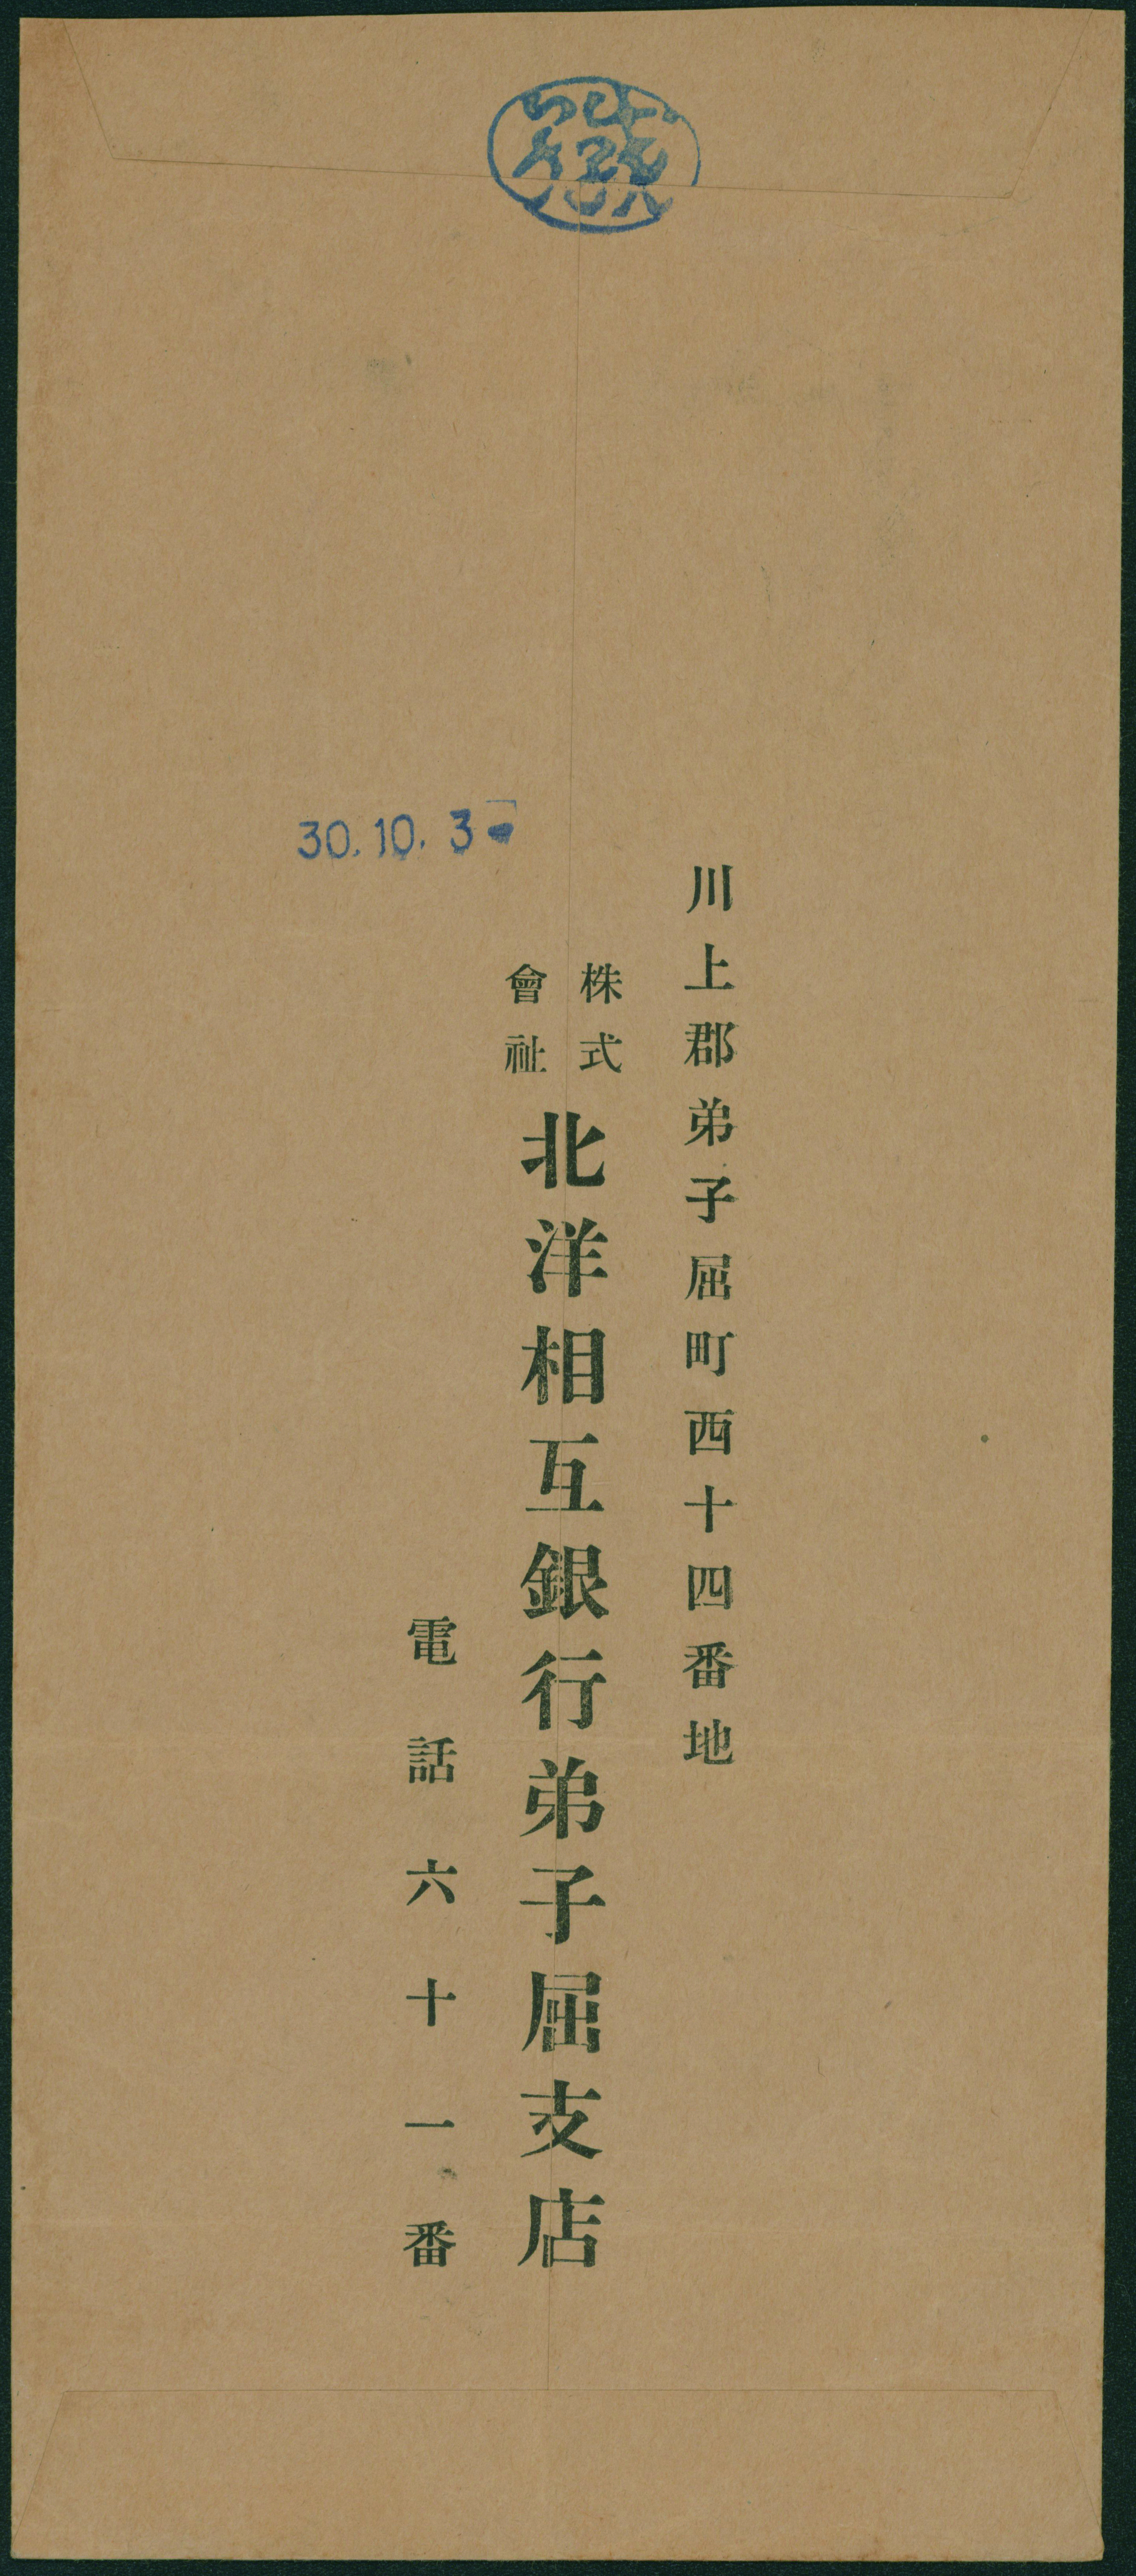 川上郡弟子屈町西十四番地
株式
會社
北洋相互銀行弟子屈支店
電話六十一番
30.10.3